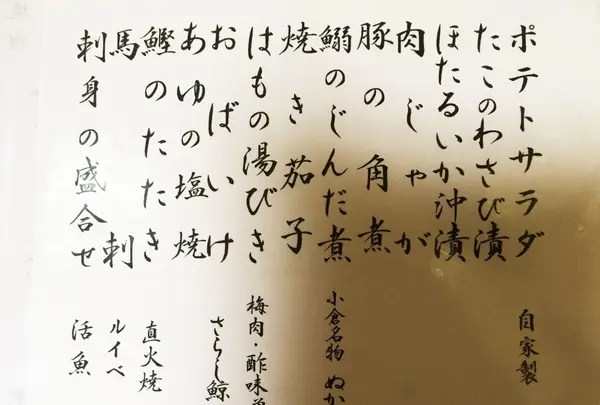 ポテトサラダ 自家製
たこのわさび漬
ほたるいか沖漬
肉じゃが
豚の角煮
鰯のじんだ煮 小倉名物 ぬか
焼き茄子
はもの湯びき 梅肉・酢味
おばいけ さらし鯨
あゆの塩焼
鰹のたたき 直火焼
馬刺 ルイベ
刺身の盛合せ 活魚